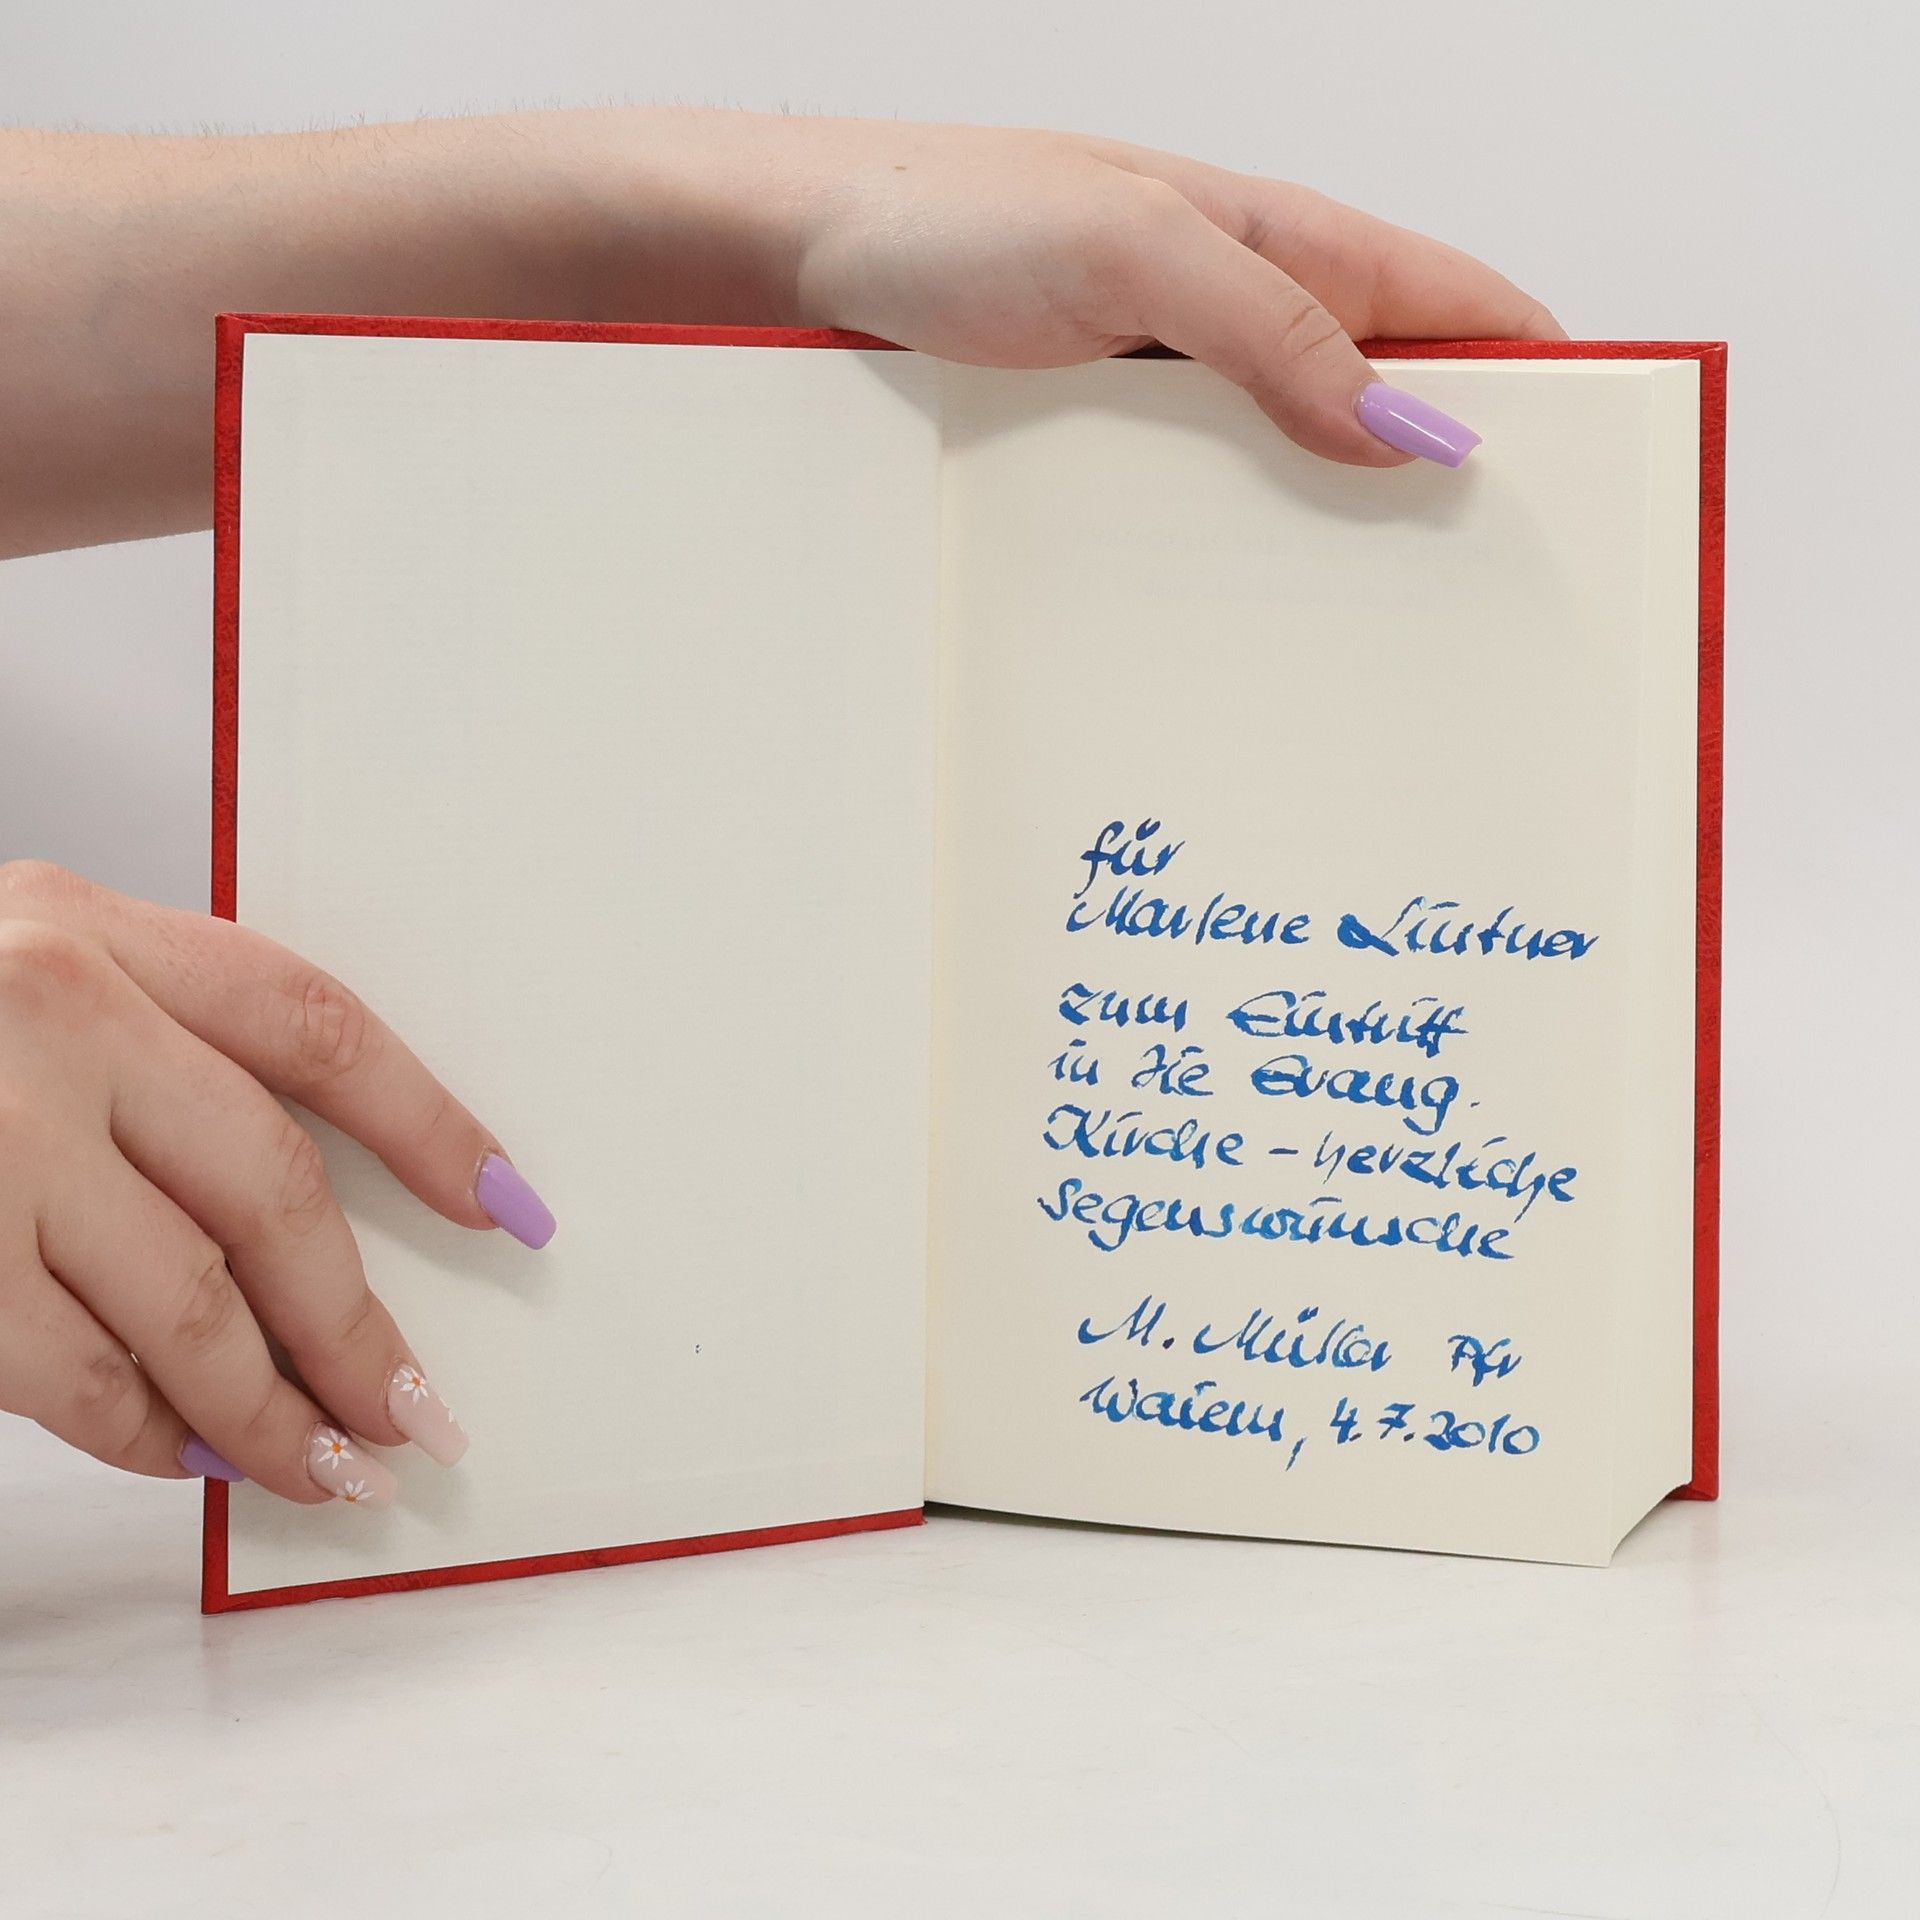 für
Marlene Lintner
zum Eintritt
in die Evang.
Kirche - herzliche
Segenswünsche
M. Müller Pfr
Waiern, 4.7.2010